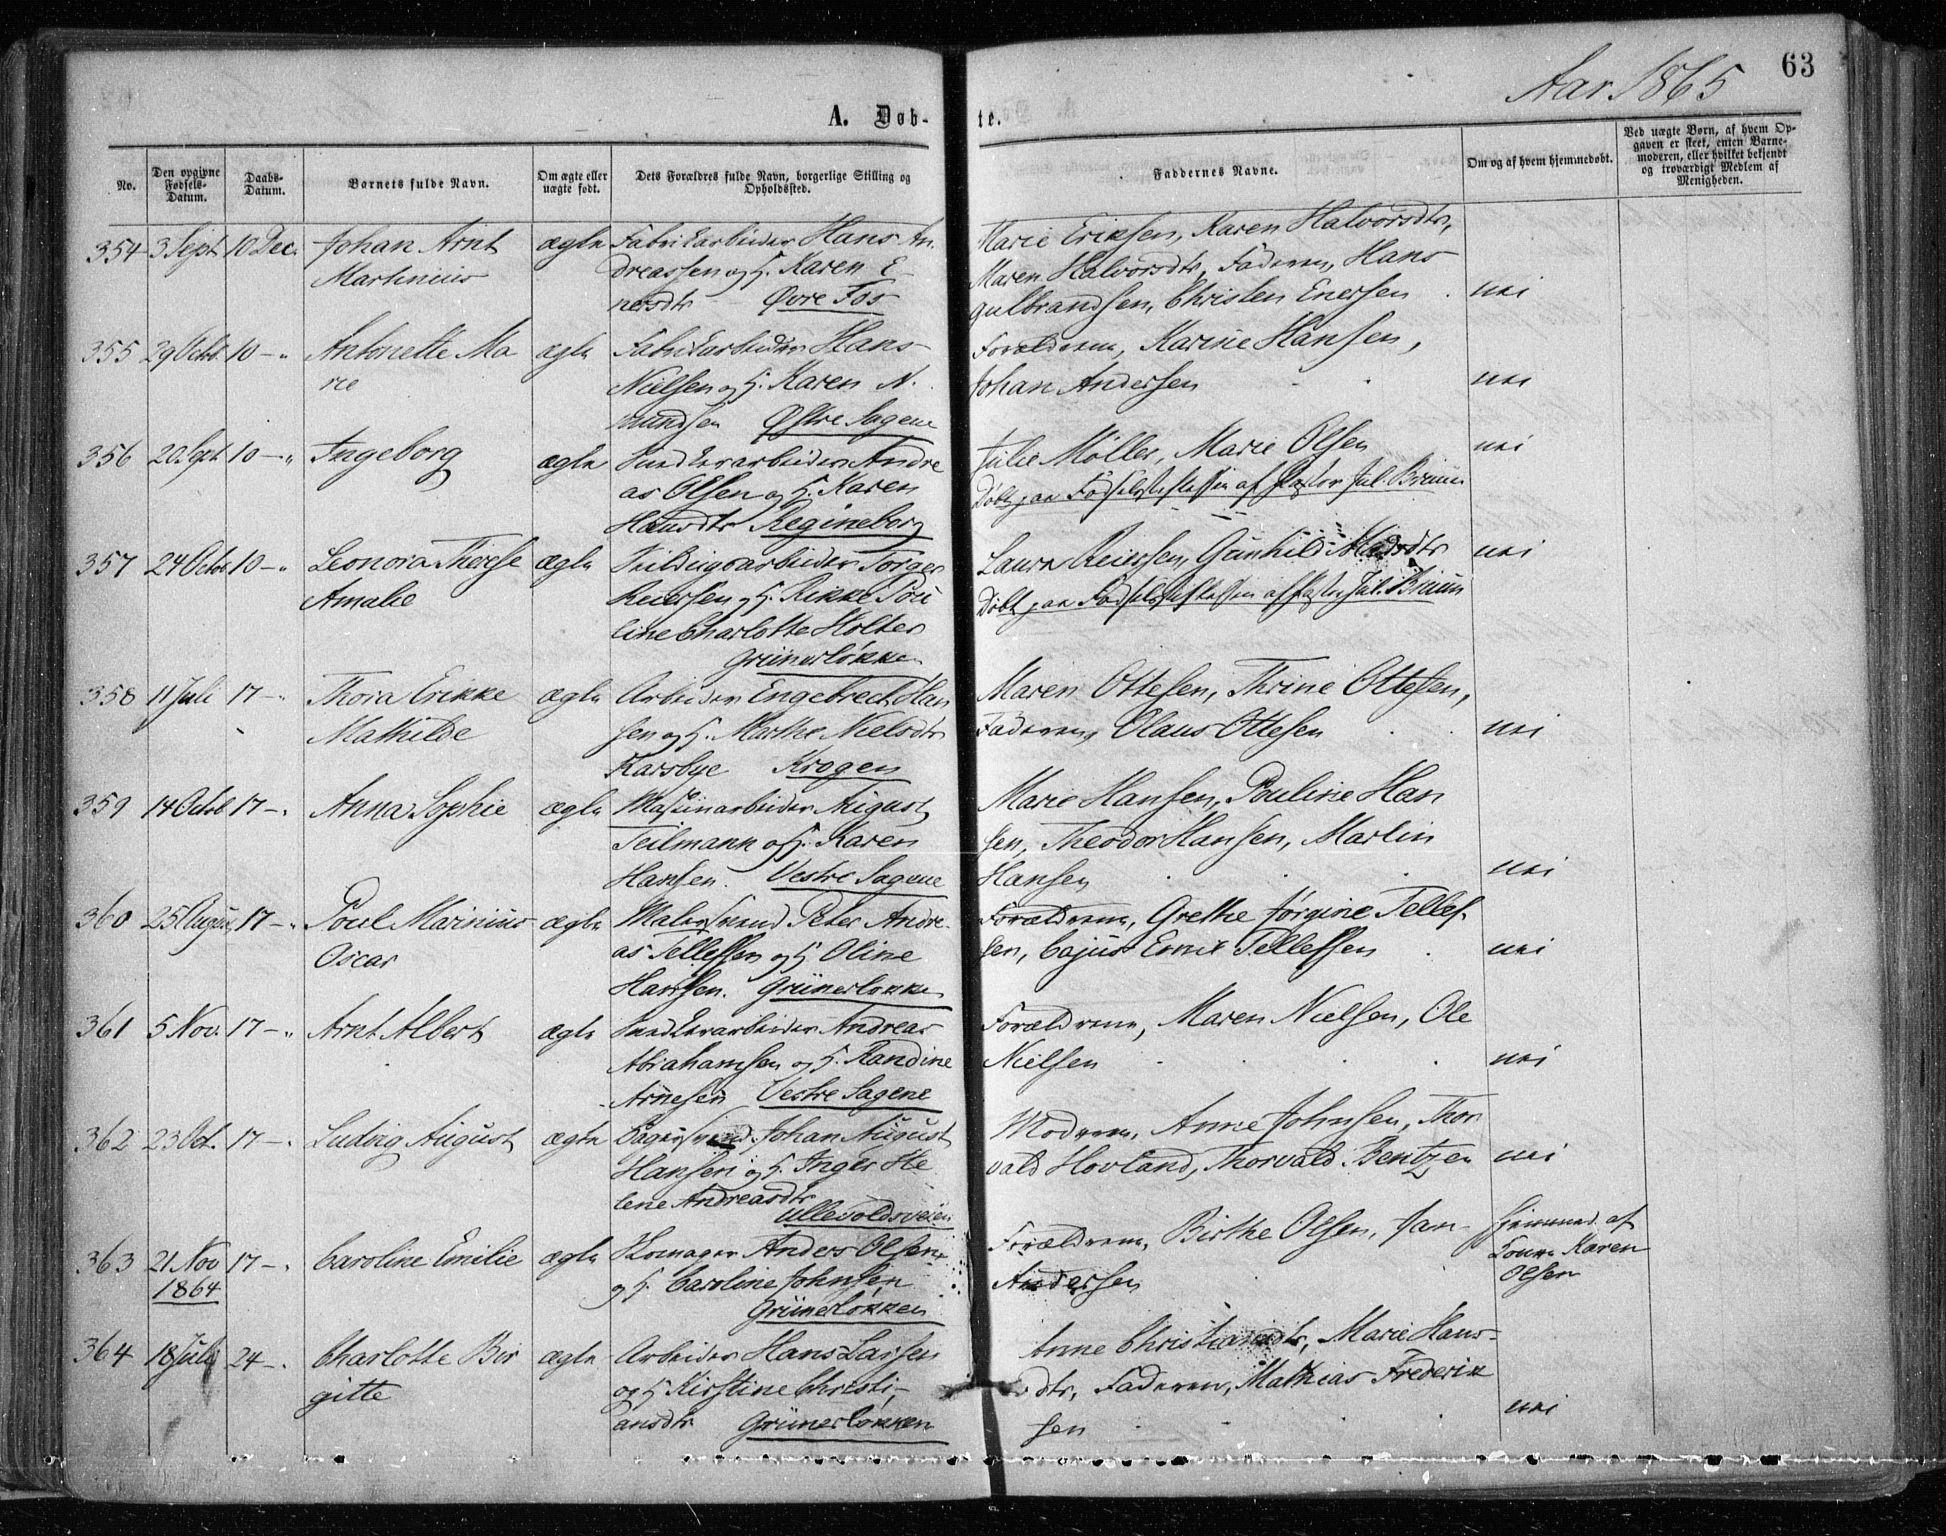 Aar 1865
63
A. Døb-
te.
No.
Den opgivne Fødsels-Datum.
Daabs-Datum.
Barnets fulde Navn.
Om ægte eller uægte født.
Dets Forældres fulde Navn, borgerlige Stilling og Opholdssted.
Faddernes Navne.
Om og af hvem hjemmedøbt.
Ved uægte Børn, af hvem Opgaven er skeet, enten Barnemoderen, eller hvilket bekjendt og troværdigt Medlem af Menigheden.
354 3 Sept 10 Dec. Johan Arnt ægte Fabrikarbeider Hans An Marie Eriksen, Karen Halvorsdtr,
Martinius dreassen og H. Karen E Maren Halvorsdtr, Faderen, Hans
nersdtr Øvre Fos Gulbrandsen, Christen Enersen nei
355 29 Octb 10 - " Antonette Ma ægte Fabrikarbeider Hans Forældrene, Karine Hansen,
rie Nielsen og H. Karen N. Johan Andersen nei
mundsen Østre Sagene
356 20 Sept 10 - " Ingeborg ægte Snedkerarbeider Andre Julie Møller, Marie Olsen nei
as Olsen og H. Karen Døbt paa Fødselsstiftelsen af Pastor Jul. Bruun
Hansdtr Regineborg
357 24 Octb 10 - " Leonora Therese ægte Arbeider Torger Laura Reiersen, Gunhild Madsdtr nei
Amalie Reiersen og H. Rikke Pou Døbt paa Fødselsstiftelsen af Pastor Jul. Bruun
line Charlotte Holter
Grünerløkke
358 11 Juli 17 - " Thora Erikke ægte Arbeider Engebrecht Han Maren Ottesen, Thrine Ottesen,
Mathilde sen og H. Marthe Nielsdtr Faderen, Olaus Ottesen nei
Karsbye Krogen
359 14 Octb 17 - " Anna Sophie ægte Maskinarbeider August Marie Hansen, Pouline Han
Teilmann og H. Karen sen, Theodor Hansen, Martin
Hansen. Vestre Sagene Hansen nei
360 25 August 17 - " Poul Marinius ægte Malersvend Peter Andre- Forældrene, Grethe Jørgine Tellef-
Oscar as Tellefsen og H Oline sen, Cajus Ernst Tellefsen nei
Hansen. Grünerløkke
361 5 Nov. 17 - " Arnt Albert ægte Snedkerarbeider Andreas Forældrene, Maren Nielsen, Ole
Abrahamsen og H. Randine Nielsen nei
Arnesen Vestre Sagene
362 23 Oct. 17 - " Ludvig August ægte Bagersvend Johan August Moderen, Anne Johnsen, Thor
Hansen og H. Inger He vald Hovland, Thorvald Bentzen nei
lene Andreasdtr
Ullevoldsveien
363 21 Nov 17 - " Caroline Emilie ægte Skomager Anders Olsen Forældrene, Birthe Olsen, Jan Hjemmed. af
1864 og H. Caroline Johnsen Andersen Karen
Grünerløkken Olsen
364 18 Juli 24 - " Charlotte Bir ægte Arbeider Hans Larsen Anne Christiansdtr, Marie Hans-
gitte og H Kirstine Christi- dtr, Faderen, Mathias Frederik
ansdtr Grünerløkken sen nei